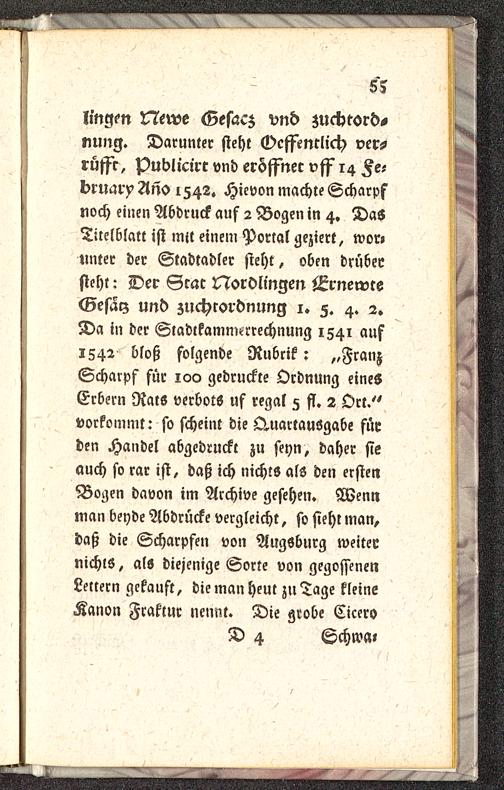 55
lingen Newe Gesacz vnd zuchtord-
nung. Darunter steht Oeffentlich ver-
rüfft, Publicirt vnd eröffnet vff 14 Fe-
bruary Año 1542. Hievon machte Scharpf
noch einen Abdruck auf 2 Bogen in 4. Das
Titelblatt ist mit einem Portal geziert, wor-
unter der Stadtadler steht, oben drüber
steht: Der Stat Nordlingen Ernewte
Gesätz und zuchtordnung 1. 5. 4. 2.
Da in der Stadtkammerrechnung 1541 auf
1542 bloß folgende Rubrik: „Franz
Scharpf für 100 gedruckte Ordnung eines
Erbern Rats verbots uf regal 5 fl. 2 Ort.“
vorkommt: so scheint die Quartausgabe für
den Handel abgedruckt zu seyn, daher sie
auch so rar ist, daß ich nichts als den ersten
Bogen davon im Archive gesehen. Wenn
man beyde Abdrücke vergleicht, so sieht man,
daß die Scharpfen von Augsburg weiter
nichts, als diejenige Sorte von gegossenen
Lettern gekauft, die man heut zu Tage kleine
Kanon Fraktur nennt. Die grobe Cicero
D 4 Schwa-